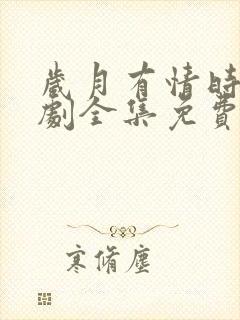 歲月有情時
劇全集免費
寒脩塵